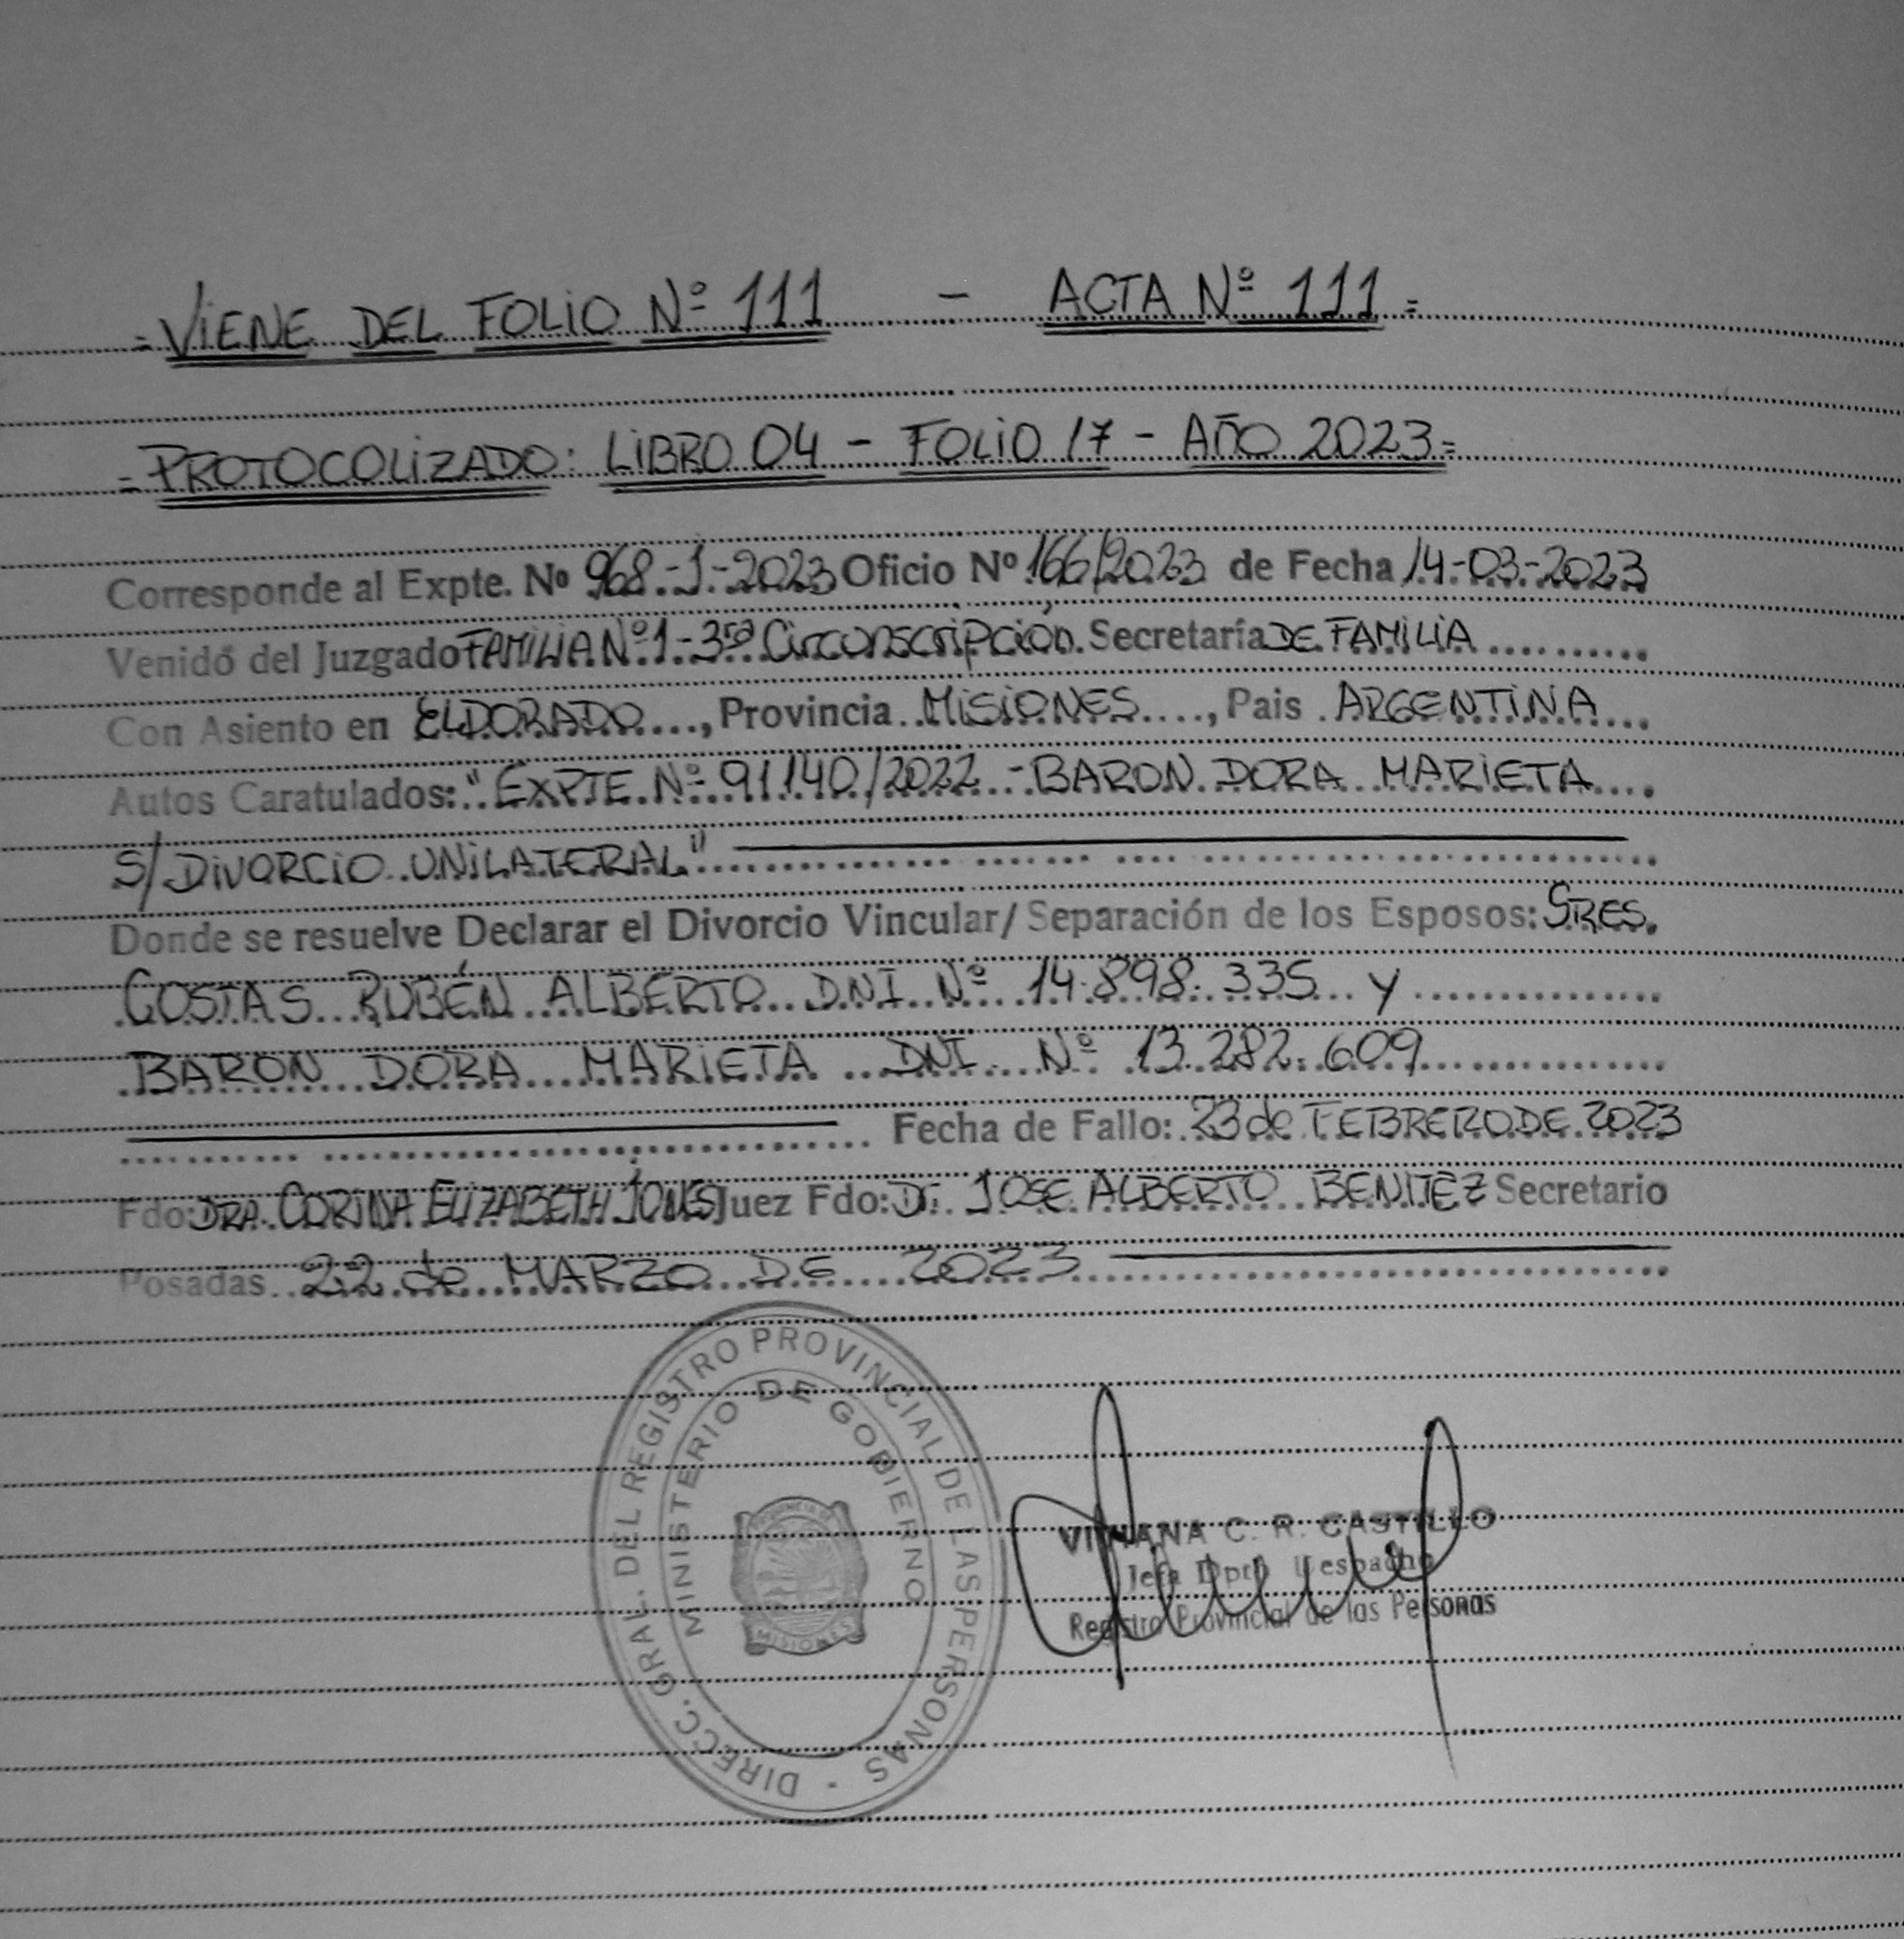 = VIENE DEL FOLIO Nº 111 - ACTA Nº 111 =
= PROTOCOLIZADO: LIBRO 04 - FOLIO 17 - AÑO 2023 =
Corresponde al Expte. Nº 968-J-2023 Oficio Nº 166/2023 de Fecha 14-03-2023
Venido del Juzgado FAMILIA Nº 1 - 3ra Circunscripción. Secretaría DE FAMILIA
Con Asiento en ELDORADO, Provincia MISIONES, Pais ARGENTINA
Autos Caratulados: "EXPTE. Nº 91140/2022 - BARON DORA MARIETA
S/ DIVORCIO UNILATERAL"
Donde se resuelve Declarar el Divorcio Vincular/ Separación de los Esposos: SRES.
COSTAS RUBÉN ALBERTO DNI Nº 14.898.335 y
BARON DORA MARIETA DNI Nº 13.282.609
Fecha de Fallo: 23 de FEBRERO DE 2023
Fdo: DRA. CORINA ELIZABETH JONES Juez Fdo: Dr. JOSE ALBERTO BENITEZ Secretario
Posadas 22 de MARZO DE 2023
DIRECC. GRAL. DEL REGISTRO PROVINCIAL DE LAS PERSONAS -
MINISTERIO DE GOBIERNO
PROVINCIA DE
MISIONES
VIVIANA C. R. CASTILLO
Jefa Dpto Despacho
Registro Provincial de las Personas